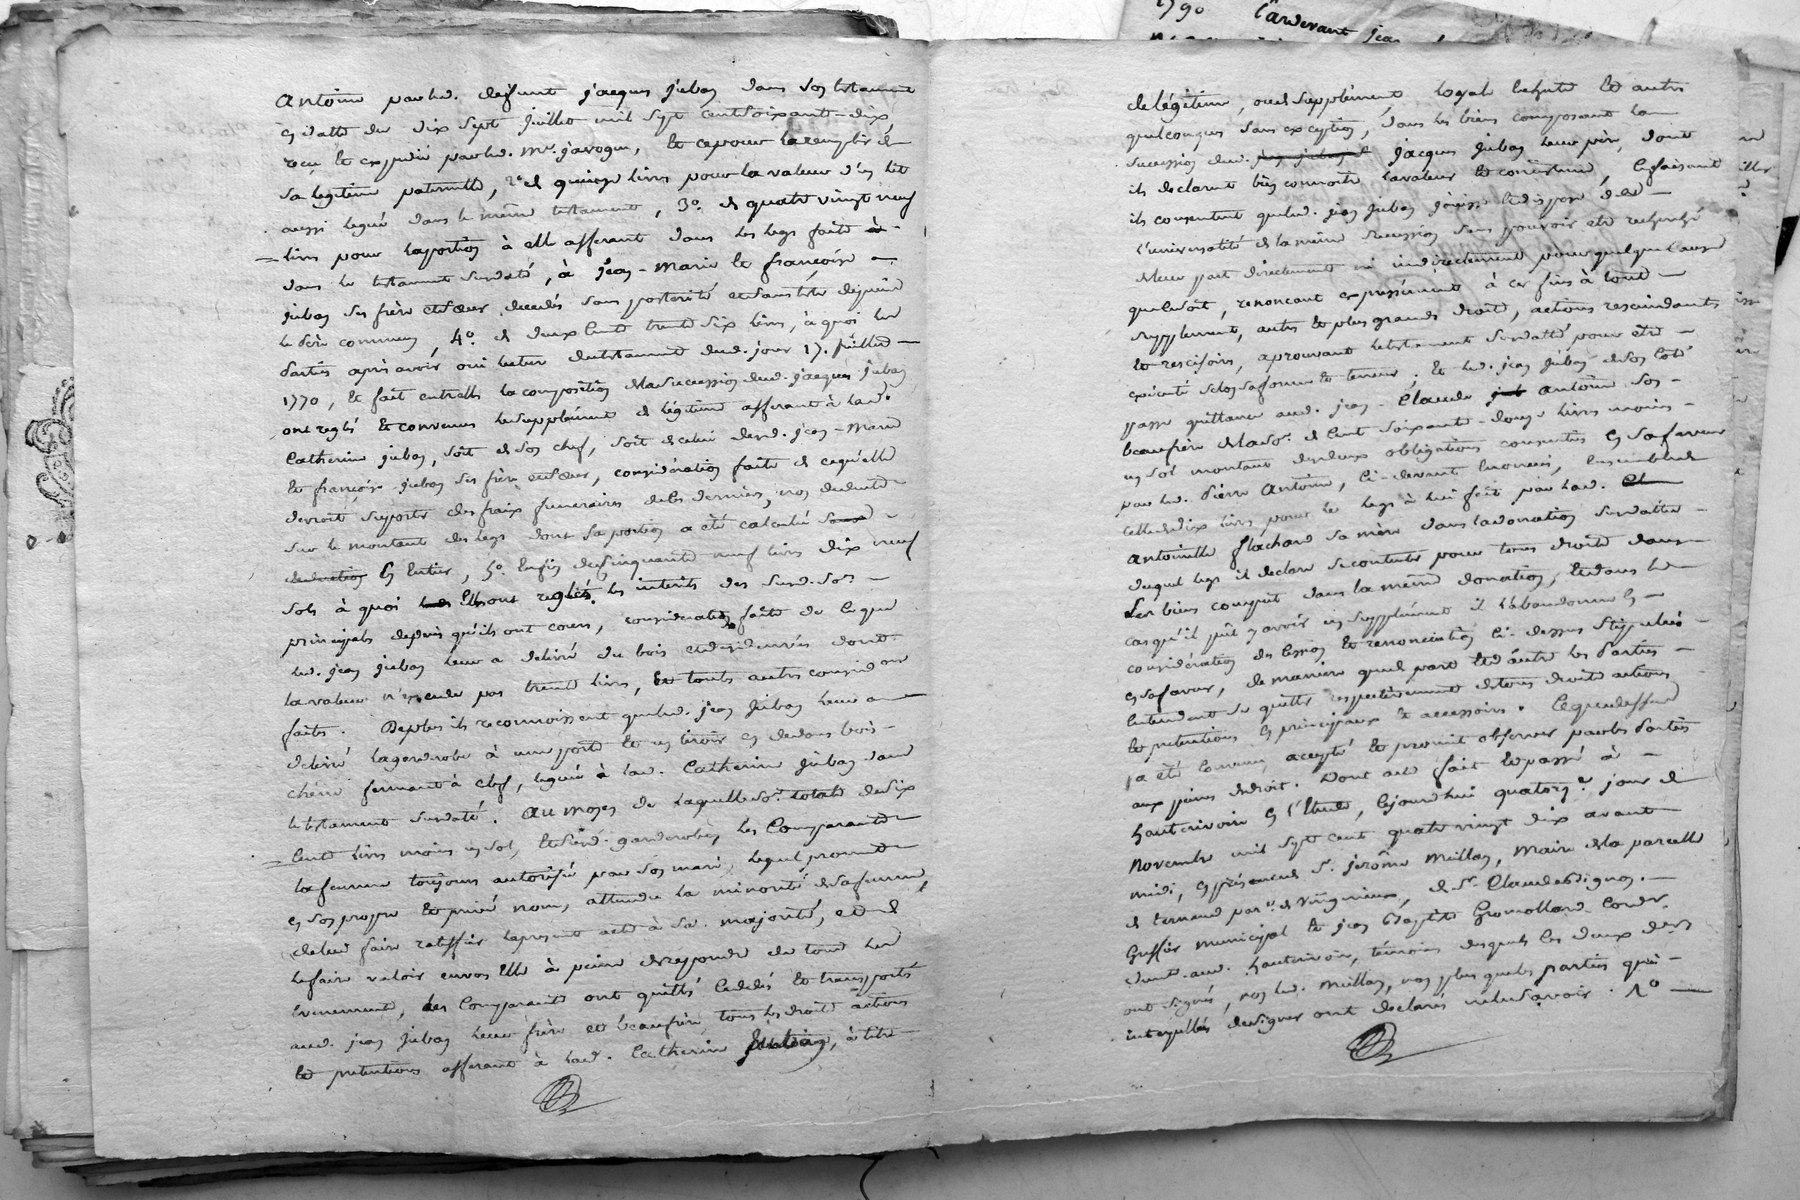 1790 Pardevant jea
Antoine par led. deffunt jacques jubay dans son testament
en datte du dix sept juillet mil sept cent soixante-dix
reçu et expedié par led. Me. javogue, et ce pour la remplir de
sa legitime paternelle, 2°. de quinze livres pour la valeur d'un lit
aussi legué dans le même testament, 3°. de quatre vingt neuf
livres pour la portion à elle afferant dans les legs faits à
dans le testament susdaté, à jean-marie et françoise
jubay ses frère et sœur, decedés sans posterité et sans tester depuis
le père commun, 4°. de deux cent trente six livres, à quoi les
parties après avoir oui lecture du testament dud. jour 17. juillet
1770, et fait entr'elles la composition de la succession dud. jacques jubay
ont reglé et convenu le supplément de légitime afferant à lad.
Catherine jubay, soit de son chef, soit de celui desd. jean-marie
et françoise jubay ses frère et sœur, consideration faite de ce qu'elle
devroit suporter des fraix funeraires de ces derniers, non deduits
sur le montant des legs dont sa portion a été calculée
en entier, 5°. enfin de cinquante neuf livres dix neuf
sols à quoi elles ont reglés les interets des susd. sommes
principales depuis qu'ils ont couru, consideration faite de ce que
led. jean jubay leur a delivré du bois et des denrées dont
la valeur n'excede pas trente livres, et toutes autres consid.ons
faites. De plus ils reconnoissent que led. jean jubay leur a
delivré la garderobe à une porte et un tiroir en dedans bois
cherié fermant à clef, leguée à lad. Catherine jubay dans
le testament susdaté. Au moyen de laquelle so.e totale de six
cent livres moins un sol, et de lad. garderobe, les Comparants
la femme toujours autorisée par son mari, lequel promet
en son propre et privé nom, attendu la minorité de sa femme
de lui faire ratiffier le present acte à sa majorité, et de
le faire valoir envers elle à peine de repondre de tout
evenement, les Comparants ont quitté cedé et transporté
aud. jean jubay leur frère et beaufrère tous les droits actions
et pretentions afferants à lad. Catherine jubay, à titre
de légitime, ou de supplément, legs et autres
quelconques sans exception, dans les biens composant la
succession dud. jacques jubay leur père, dont
ils declarent bien connoître la valeur et consistance, ce faisant
ils consentent que led. jean jubay jouisse et dispose de
l'universalité de la même succession sans pouvoir etre recherché
de leur part directement ni indirectement pour quelque cause
que ce soit, renonçant expressément à ces fins à tout
supplement, autres et plus grands droits, actions rescindantes
et rescisoires, aprouvant le testament susdatté pour être
exécuté selon sa forme et teneur. Et led. jean jubay de son coté
passe quittance aud. jean-Claude Antoine son
beaufrère de la so.e de cent soixante-douze livres moins
un sol montant des deux obligations consenties en sa faveur
par led. Pierre Antoine, ci-devant enoncées, ensemble de
celle de dix livres pour le legs à lui fait par lad.
Antoinette flachard sa mère dans la donation susdattée
duquel legs il declare se contenter pour tous droits dans
les biens compris dans la même donation, et dans le
cas qu'il put y avoir un supplément il l'abandonne en
consideration des cession et renonciation ci-dessus stipulées
en sa faveur, de maniere que de part et d'autre les parties
entendent se quitter respectivement de tous droits actions
et pretentions en principaux et accessoires. Ce que dessus
a été convenu, accepté et promit observer par les parties
aux peines de droit. Dont acte fait et passé à
hauterivoire en l'Etude, cejourdhui quatorz.e jour de
Novembre mil sept cent quatre vingt dix avant
midi, en présence de S.r jerôme Meillay, Maire de la parcelle
de ternand par.e de Virigneux, de S.r Claude Vignon
Greffier municipal et jean Baptiste Gromollard Cordr.
dem.t aud. hauterivoire, témoins desquels les deux ders
ont signés, non led. Meillay, non plus que les parties qui
interpellés de signer ont declarés ne le savoir. 1°